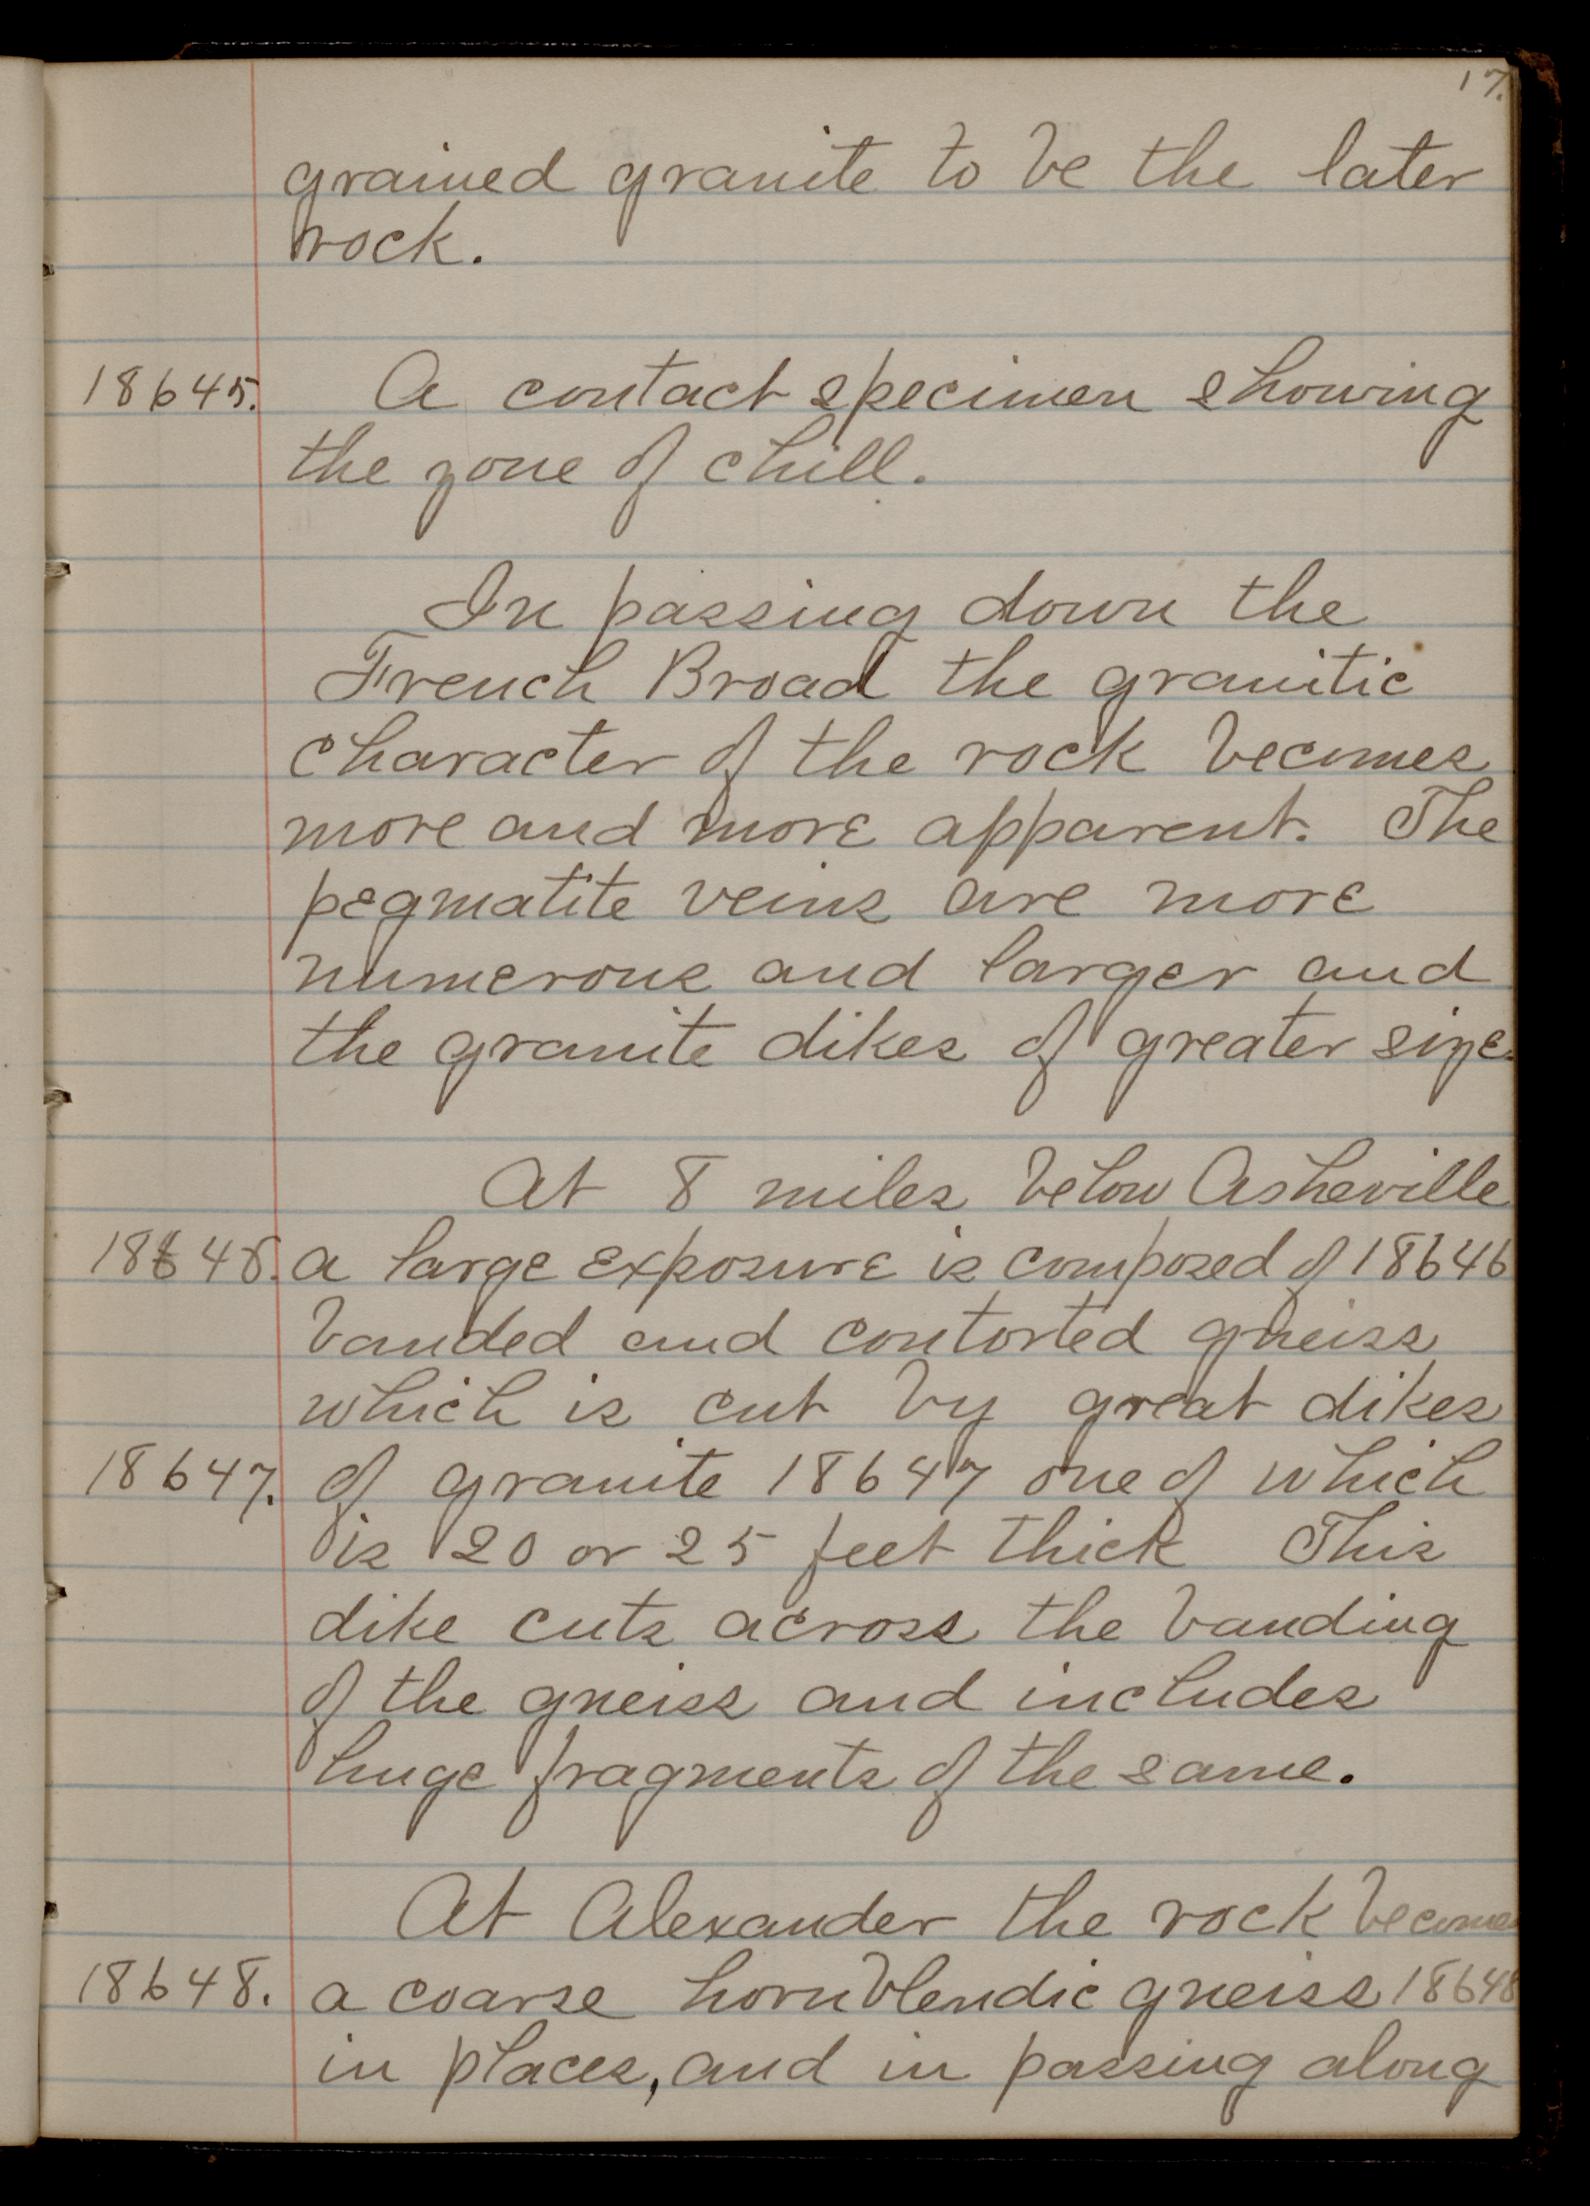 17.
grained granite to be the later
rock.
18645. A contact specimen showing
the zone of chill.
In passing down the
French Broad the granitic
character of the rock becomes
more and more apparent. The
pegmatite veins are more
numerous and larger and
the granite dikes of greater size.
At 8 miles below Asheville
a large exposure is composed of 18646
banded and contorted gneiss
which is cut by great dikes
18647. of granite 18647 one of which
is 20 or 25 feet thick This
dike cuts across the banding
of the gneiss and includes
huge fragments of the same.
At Alexander the rock becomes
18648. a coarse hornblendic gneiss 18648
in places, and in passing along